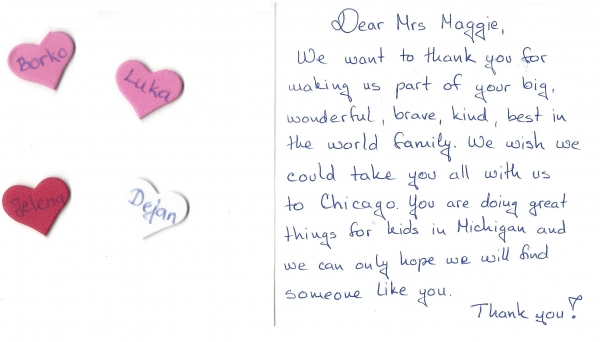 Borko
Luka
Jelena
Dejan
Dear Mrs Maggie,
We want to thank you for
making us part of your big,
wonderful, brave, kind, best in
the world family. We wish we
could take you all with us
to Chicago. You are doing great
things for kids in Michigan and
we can only hope we will find
someone like you.
Thank you!